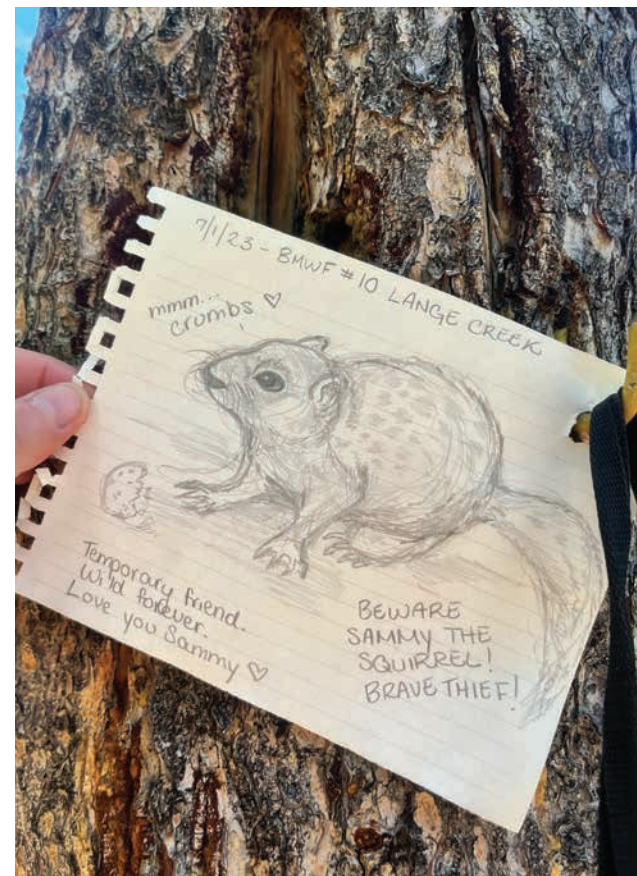 7/1/23 - BMWF #10 LANGE CREEK
mmm... ♡
crumbs
Temporary friend.
Wild forever.
Love you Sammy ♡
BEWARE
SAMMY THE
SQUIRREL!
BRAVE THIEF!